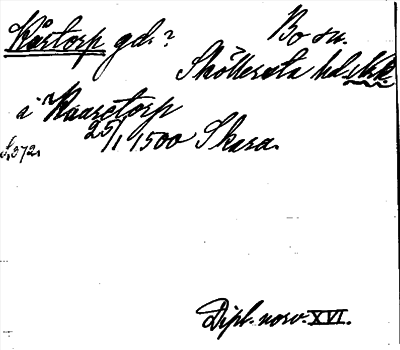 Kårtorp gd.? Bo sn.
Skölersta hd. Nrk.
a Kaaretorp
25/1 1500 Skara.
S. 372.
Dipl. norv. XVI.